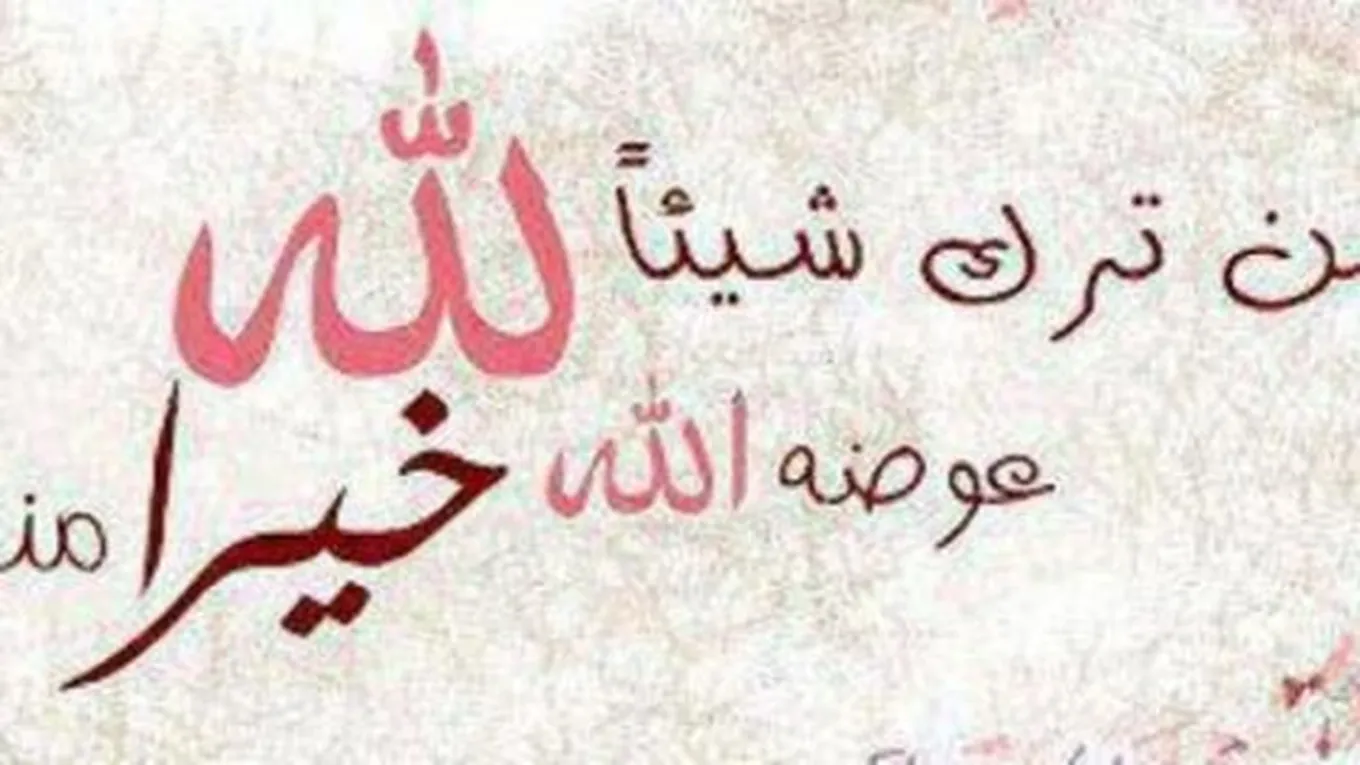 من ترك شيئاً لله
عوضه الله خيرا منه